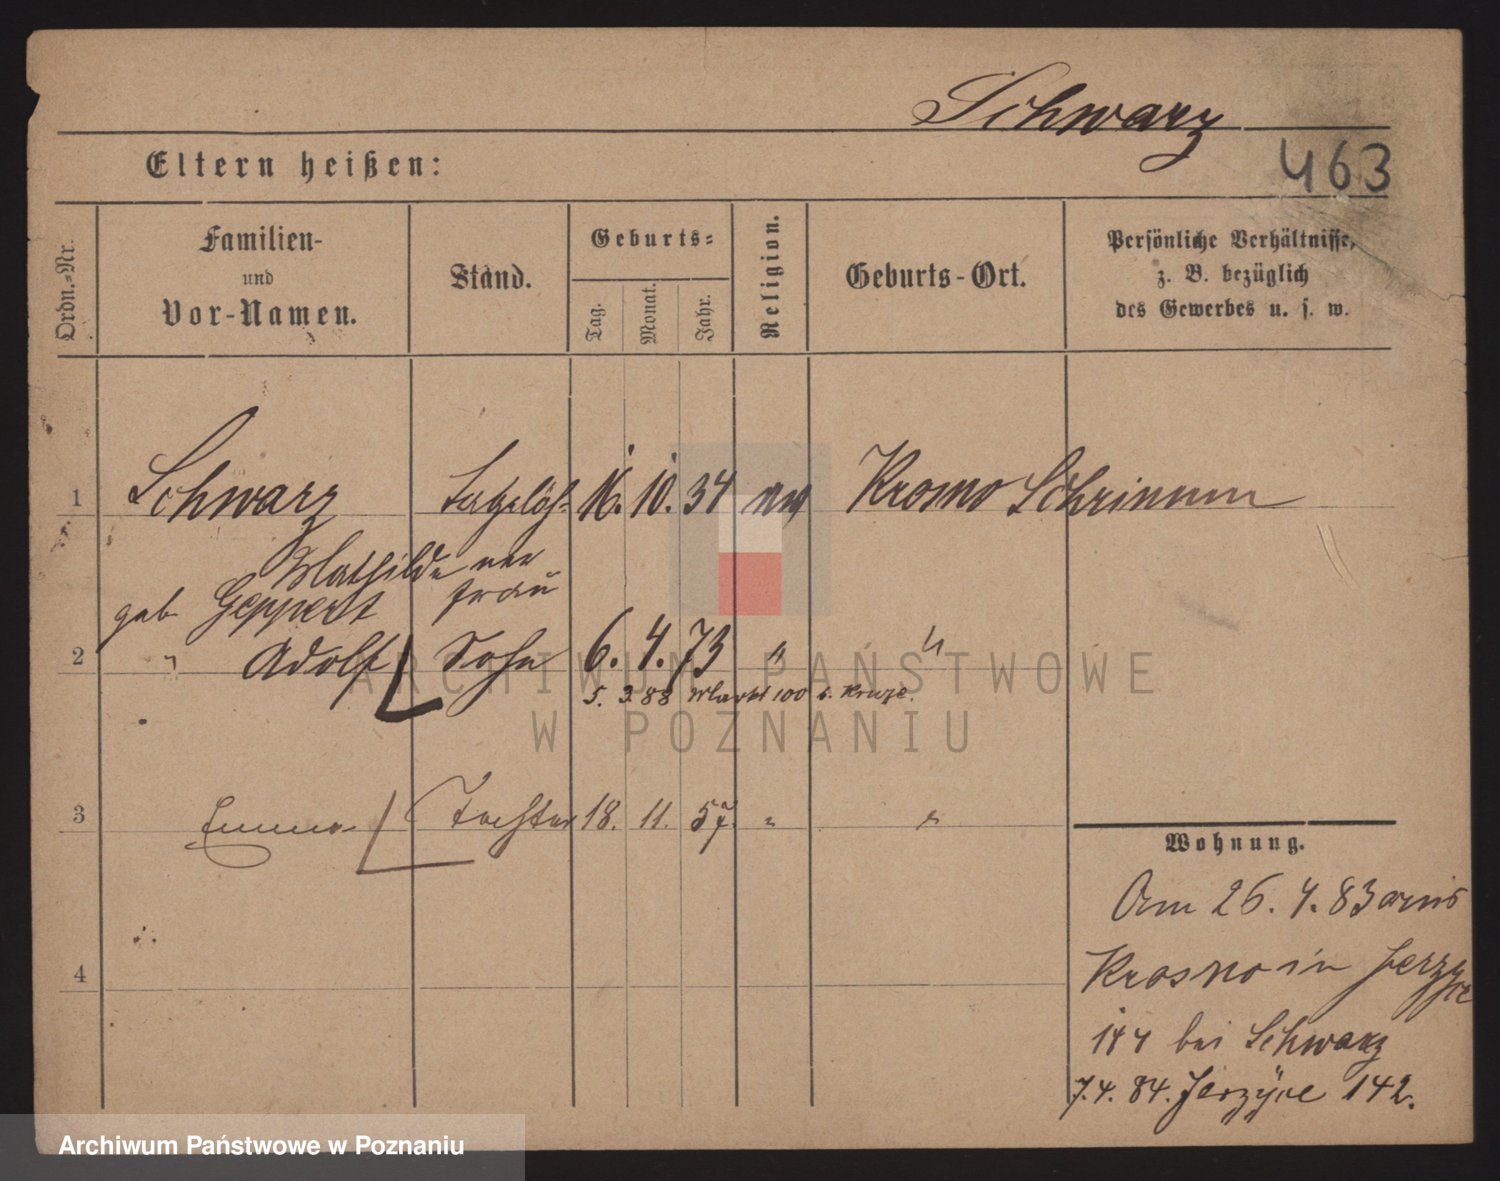 Schwarz
Eltern heißen:
463
Ordn.-Nr.
Familien-
und
Vor-Namen.
Stand.
Geburts-
Tag.
Monat.
Jahr.
Religion.
Geburts-Ort.
Persönliche Verhältnisse,
z. B. bezüglich
des Gewerbes u. s. w.
1 Schwarz Tagelöh- 16. 10. 34 Krosno Schrimm
Mathilde
gab Geppert frau
2 " Adolf Sohn 6. 4. 73 " "
5. 3. 88 Markt 100 b. Kruze.
3 Emma Tochter 18. 11. 57. " "
4
Wohnung.
Am 26. 4. 83 aus
Krosno in Jerzyce
144 bei Schwarz
7. 4. 84. Jerzyce 142.
ARCHIWUM PAŃSTWOWE
W POZNANIU
Archiwum Państwowe w Poznaniu